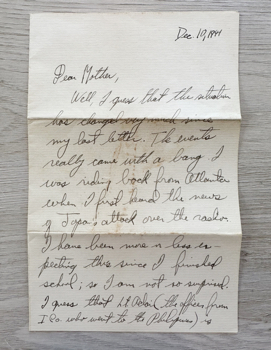 Dec. 10, 1941
Dear Mother,
Well, I guess that the situation
has changed very much since
my last letter. The events
really came with a bang. I
was riding back from Atlanta
when I first heard the news
of Japs attack over the radio.
I have been more or less ex-
pecting this since I finished
school, so I am not so surprised.
I guess that Lt (the officer from
I Co. who went to the Philipines) is